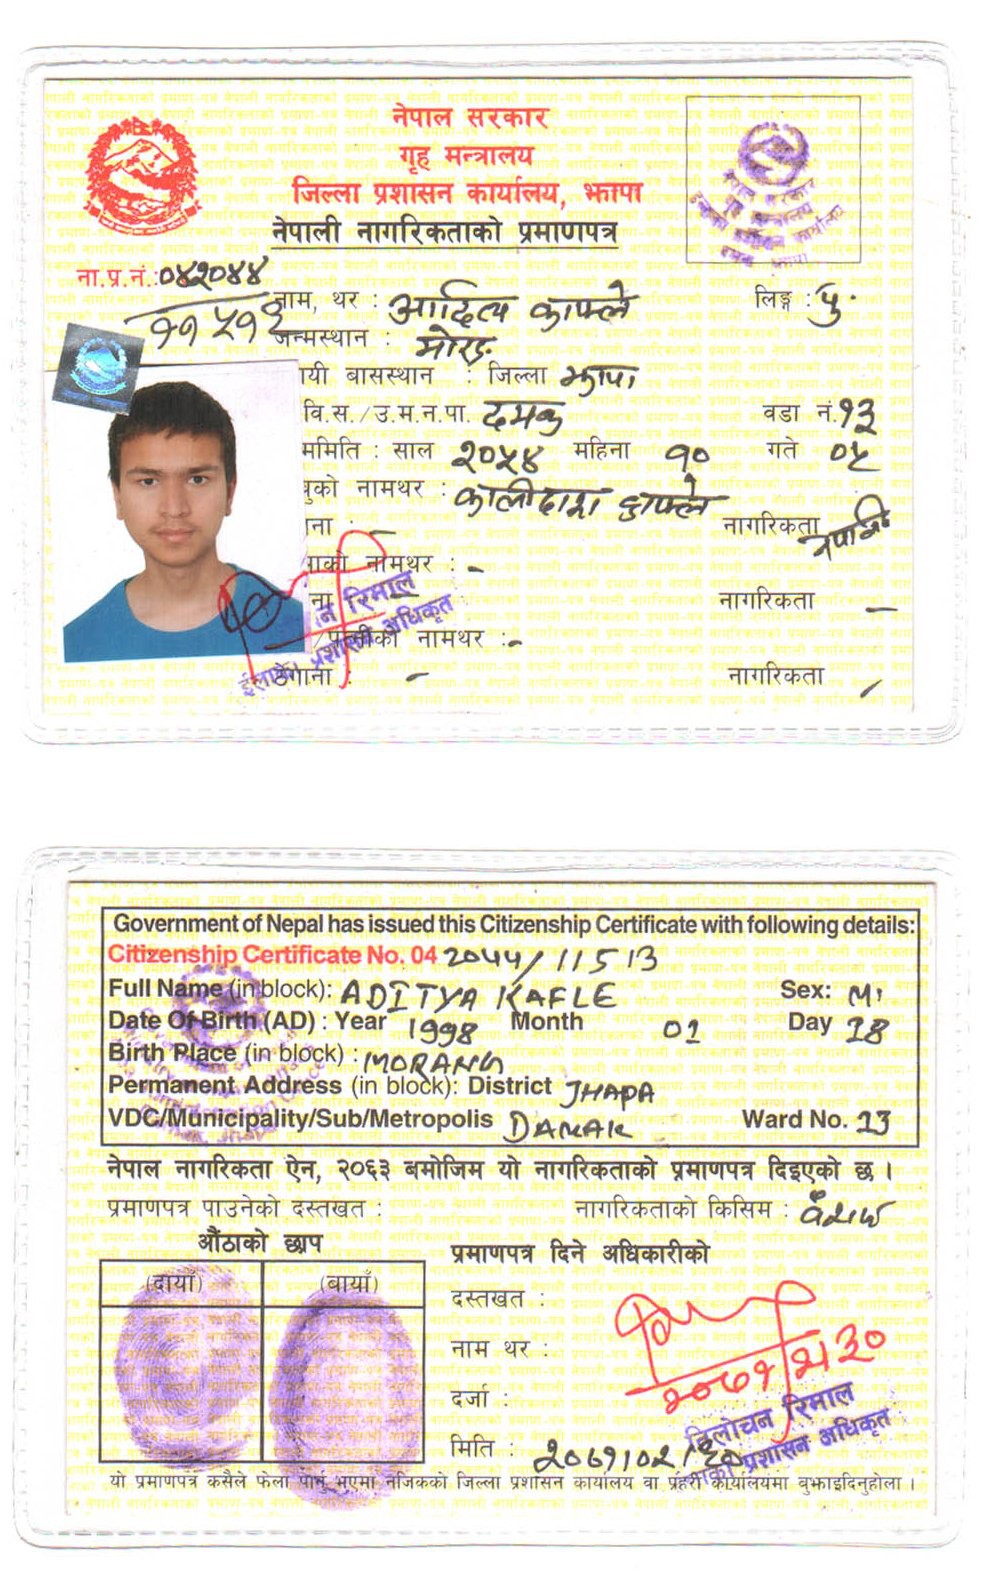 नेपाल सरकार
गृह मन्त्रालय
जिल्ला प्रशासन कार्यालय, झापा
नेपाली नागरिकताको प्रमाणपत्र
ना.प्र.नं.:०४२०४४
११५१३
नाम, थर : आदित्य काफ्ले लिङ्ग : पु.
जन्मस्थान : मोरङ
ायी बासस्थान : जिल्ला झापा
वि.स./उ.म.न.पा. दमक वडा नं.१३
ममिति : साल २०५४ महिना १० गते ०५
ुको नामथर : कालीदास काफ्ले
ाना : - नागरिकता नेपाली
ाको नामथर : -
ना नागरिकता -
/पत्नीको नामथर :-
ठेगाना : - नागरिकता -
न रिमाल
प्रशासन अधिकृत
Government of Nepal has issued this Citizenship Certificate with following details:
Citizenship Certificate No. 04 2044/11513
Full Name (in block): ADITYA KAFLE Sex: M.
Date Of Birth (AD) : Year 1998 Month 01 Day 18
Birth Place (in block) : MORANG
Permanent Address (in block): District JHAPA
VDC/Municipality/Sub/Metropolis DAMAK Ward No. 13
नेपाल नागरिकता ऐन, २०६३ बमोजिम यो नागरिकताको प्रमाणपत्र दिइएको छ ।
प्रमाणपत्र पाउनेको दस्तखत : नागरिकताको किसिम : वंशज
औंठाको छाप
(दायाँ) (बायाँ)
प्रमाणपत्र दिने अधिकारीको
दस्तखत :
नाम थर :
२०७१/२/३०
दर्जा :
त्रिलोचन रिमाल
प्रशासन अधिकृत
मिति : 2071/02/30
यो प्रमाणपत्र कसैले फेला पार्नु भएमा नजिकको जिल्ला प्रशासन कार्यालय वा प्रहरी कार्यालयमा बुझाइदिनुहोला ।